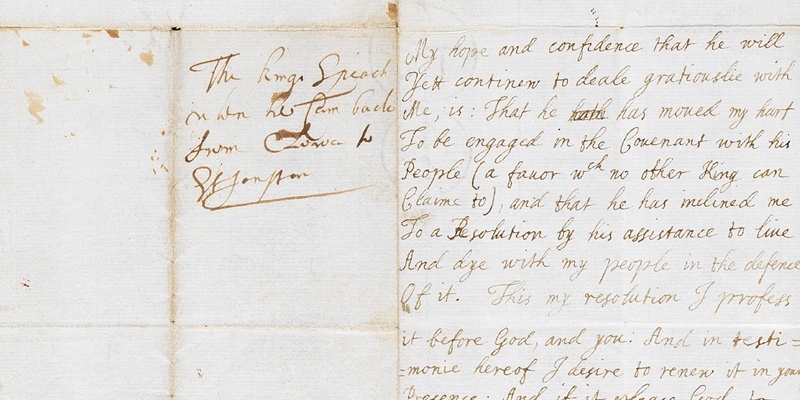 The kings Speach
when he Cam back
from Clowa to
St Jonston
My hope and confidence that he will
Yett continew to deale gratiouslie with
Me, is: That he hath has moved my hart
To be engaged in the Covenant with his
People (a favor wch no other King can
Claime to), and that he has inclined me
To a Resolution by his assistance to live
And dye with my people in the defence
Of it. This my resolution I profess
it before God, and you: And in testi=
=monie hereof I desire to renew it in your
Presence: And if it please God to